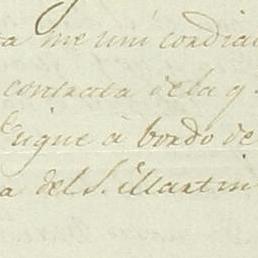 a me uni cordial
contrata de la q.
bordo de
a del S. Martin